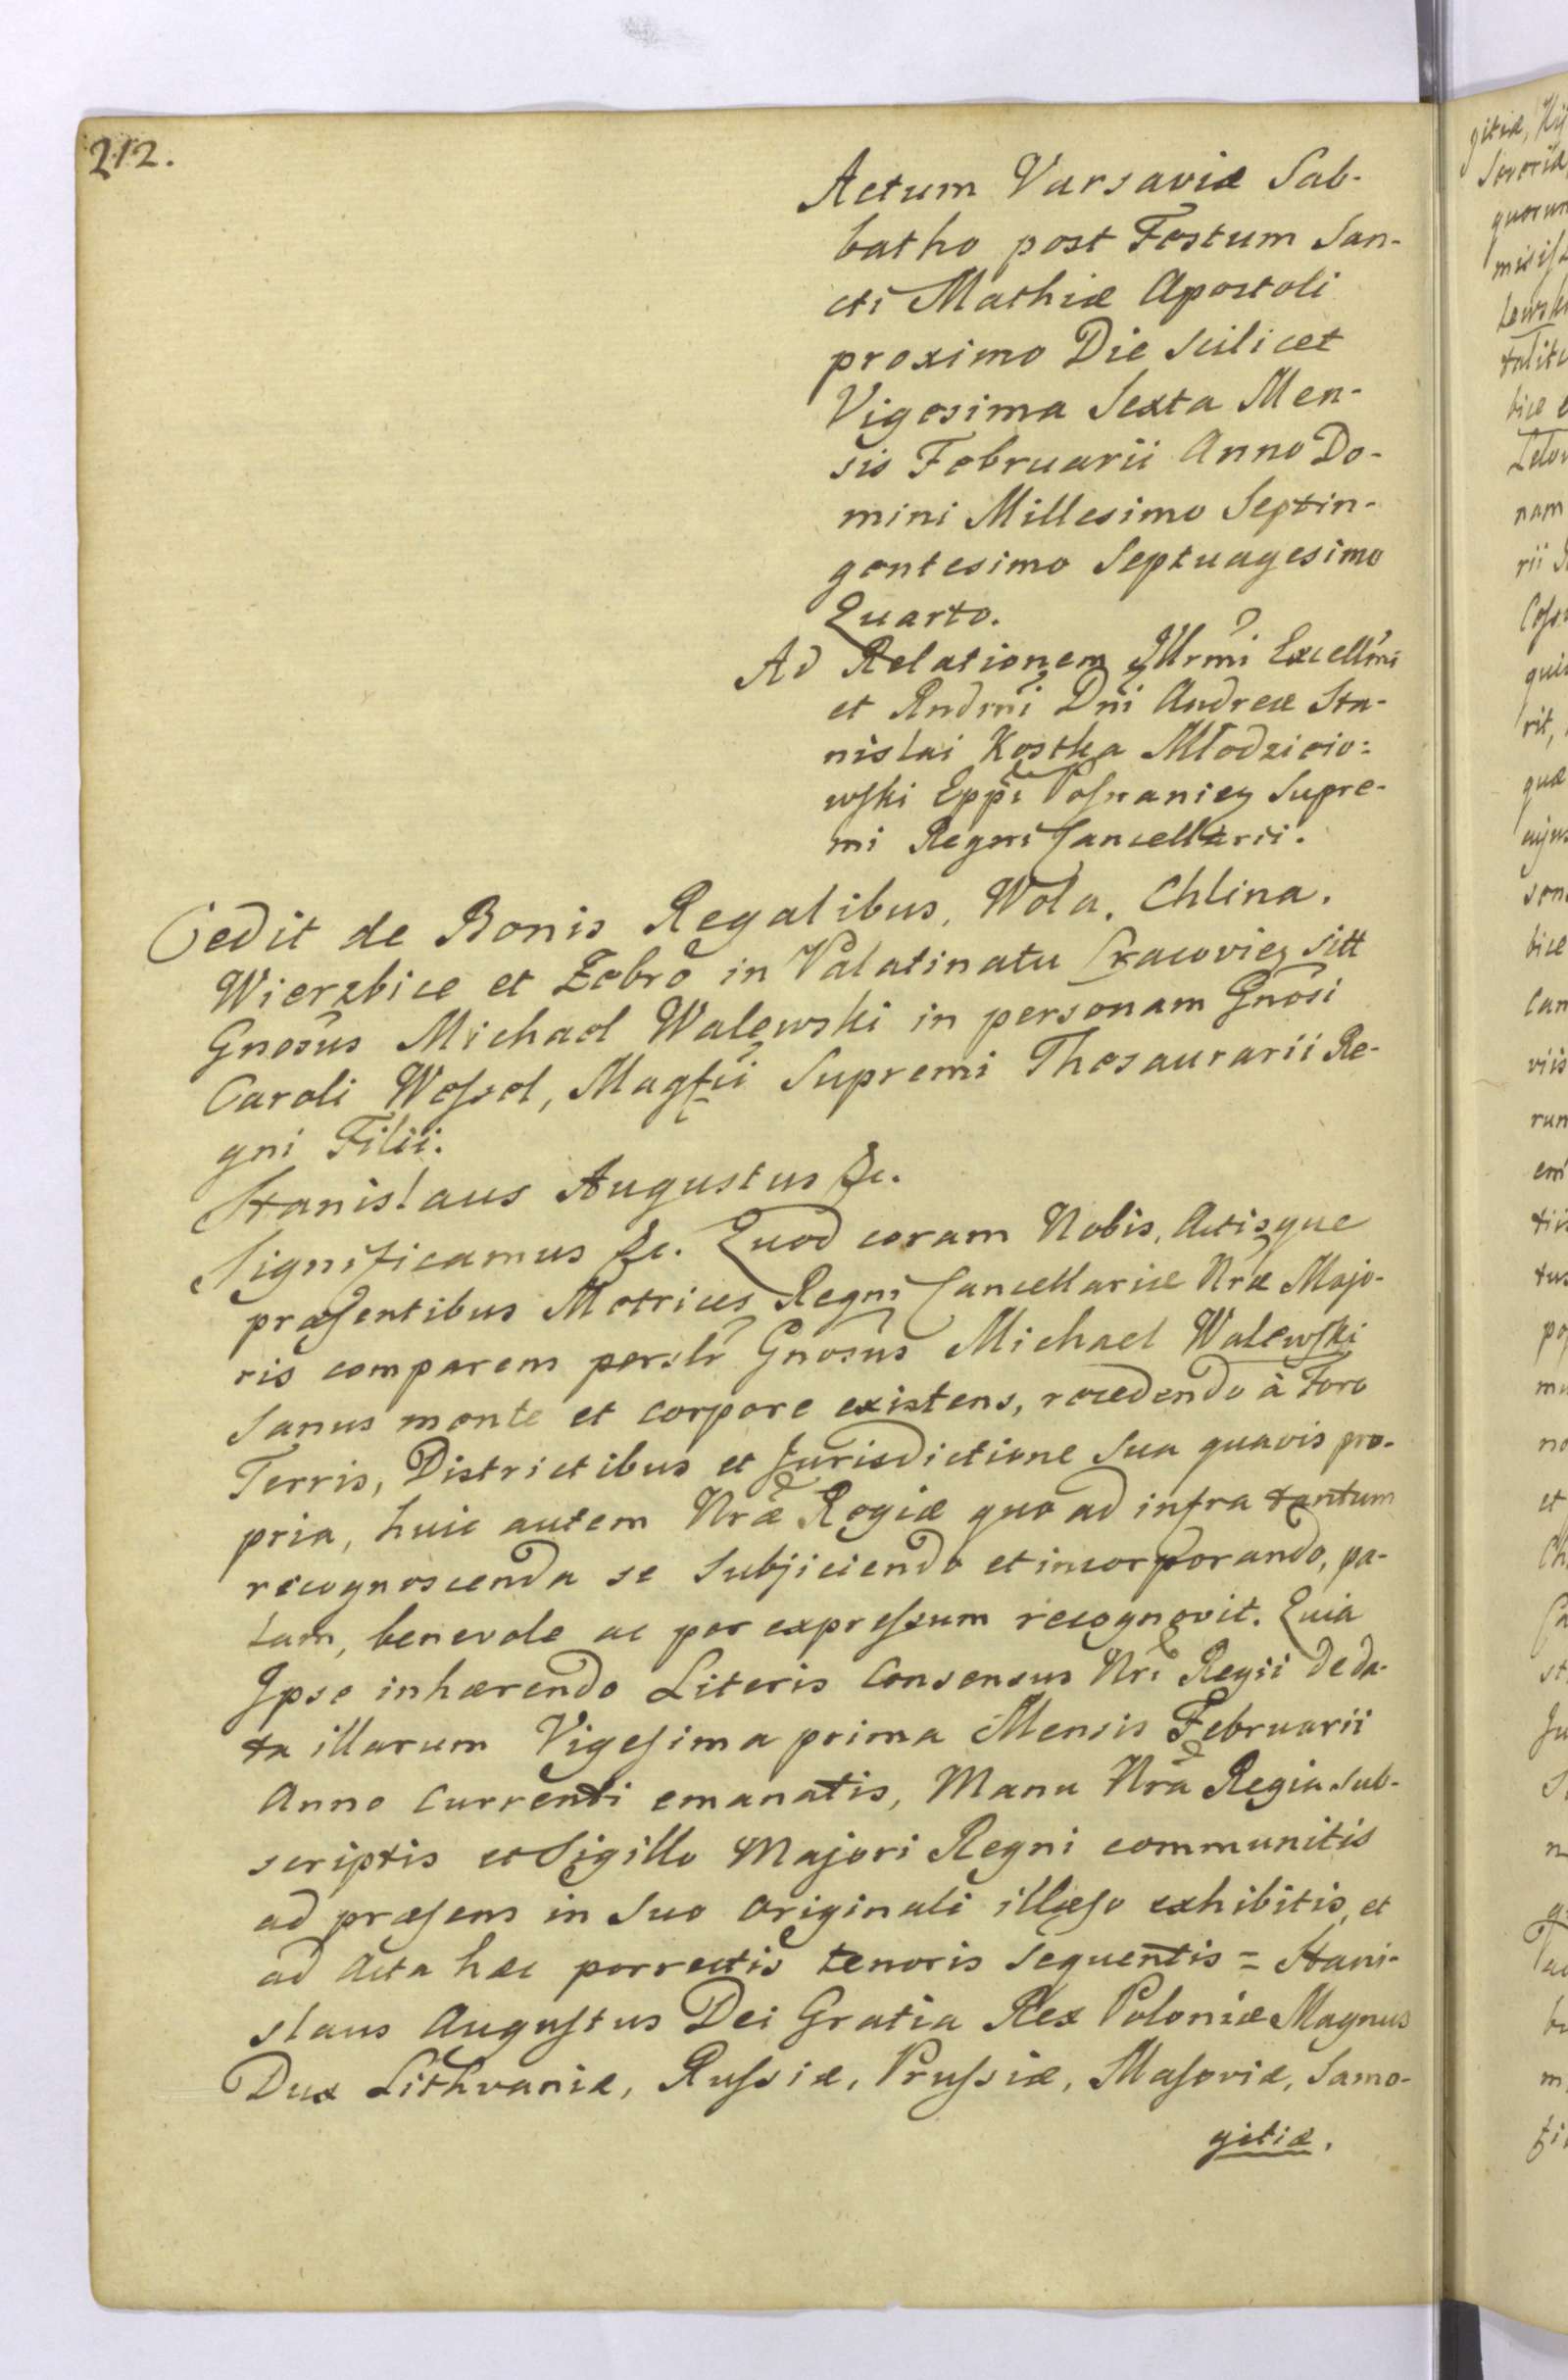 212.
Actum Varsaviæ Sab-
batho post Festum San-
cti Mathiæ Apostoli
proximo Die scilicet
Vigesima Sexta Men-
sis Februarii Anno Do-
mini Millesimo Septin-
gentesimo Septuagesimo
Quarto.
Ad Relationem Illrmi Excellmi
et Rndmi Dni Andreæ Sta-
nislai Kostka Młodzieio=
wſki Eppi Poſnanien Supre-
mi Regni Cancellarii.
Cedit de Bonis Regalibus, Wola, Chlina.
Wierzbice et Zebro in Palatinatu Cracovien sitt
Gnosus Michael Walewski in personam Gnosi
Caroli Weſsel, Magfci Supremi Thesaurarii Re-
gni Filii.
Stanislaus Augustus &c.
Significamus &c. Quod coram Nobis, Actisque
præſentibus Metrices Regni Cancellariæ Nræ Majo-
ris comparens perslr Gnosus Michael Walewſki
sanus mente et corpore existens, recedendo à Foro
Terris, Districtibus et Jurisdictione Sua quavis pro-
pria, huic autem Nræ Regiæ quo ad infra tantum
recognoscenda se Subjiciendo et incorporando, pa-
lam, benevole ac per expreſsum recognovit. Quia
Ipse inhærendo Literis Consensus Nri Regii de da-
ta illarum Vigeſima prima Mensis Februarii
Anno Currenti emanatis, Manu Nra Regia sub-
scriptis et Sigillo Majori Regni communitis
ad præſens in Suo Originali illæſo exhibitis, et
ad Acta hæc porrectis tenoris Sequentis = Stani-
slaus Auguſtus Dei Gratia Rex Poloniæ Magnus
Dux Lithvaniæ, Ruſsiæ, Pruſsiæ, Maſoviæ, Samo-
gitiæ,